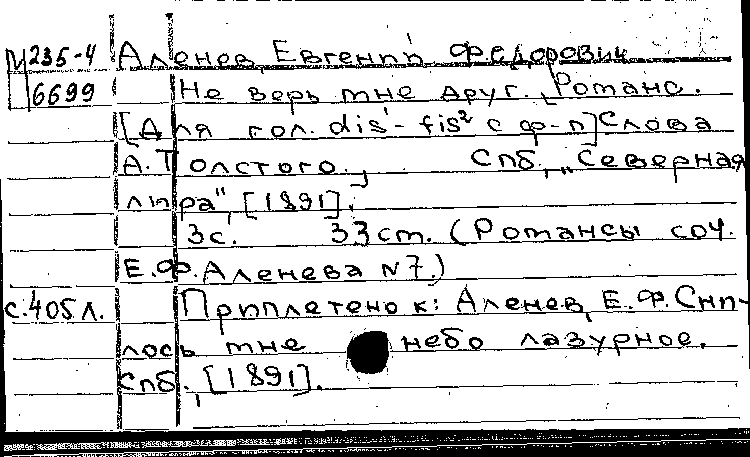 М 235-4 Аленев, Евгений Федорович
6699 Не верь мне друг. Романс.
[Для гол. dis¹- fis² с ф-п] Слова
А. Толстого. Спб., „Северная
лира", [1891].
3с. 33 см. (Романсы соч.
Е.Ф. Аленева N7.)
с.405л. Приплетено к: Аленев, Е.Ф. Сни-
лось мне небо лазурное.
Спб., [1891].